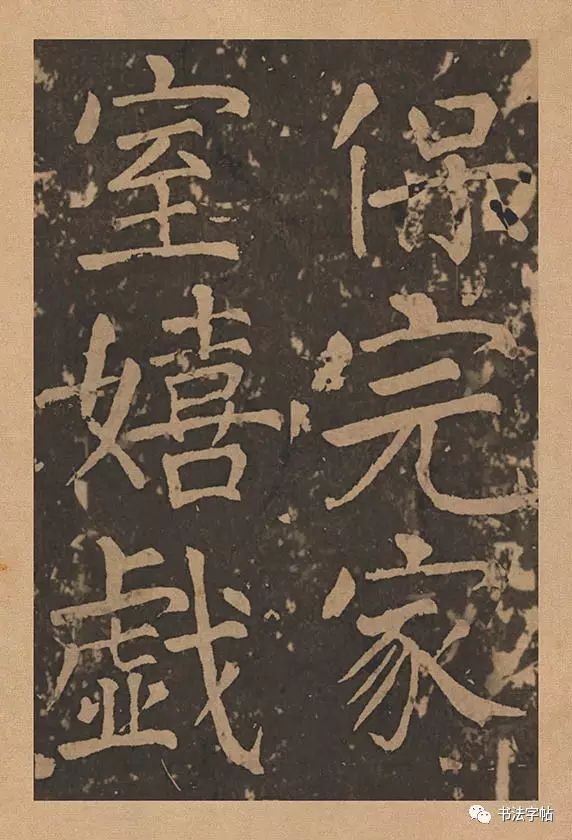 保完家
室嬉戯
书法字帖